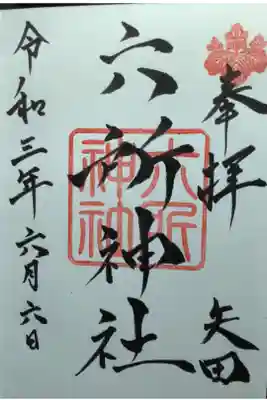 奉拝
矢田
六所神社
六所
神社
令和三年六月六日